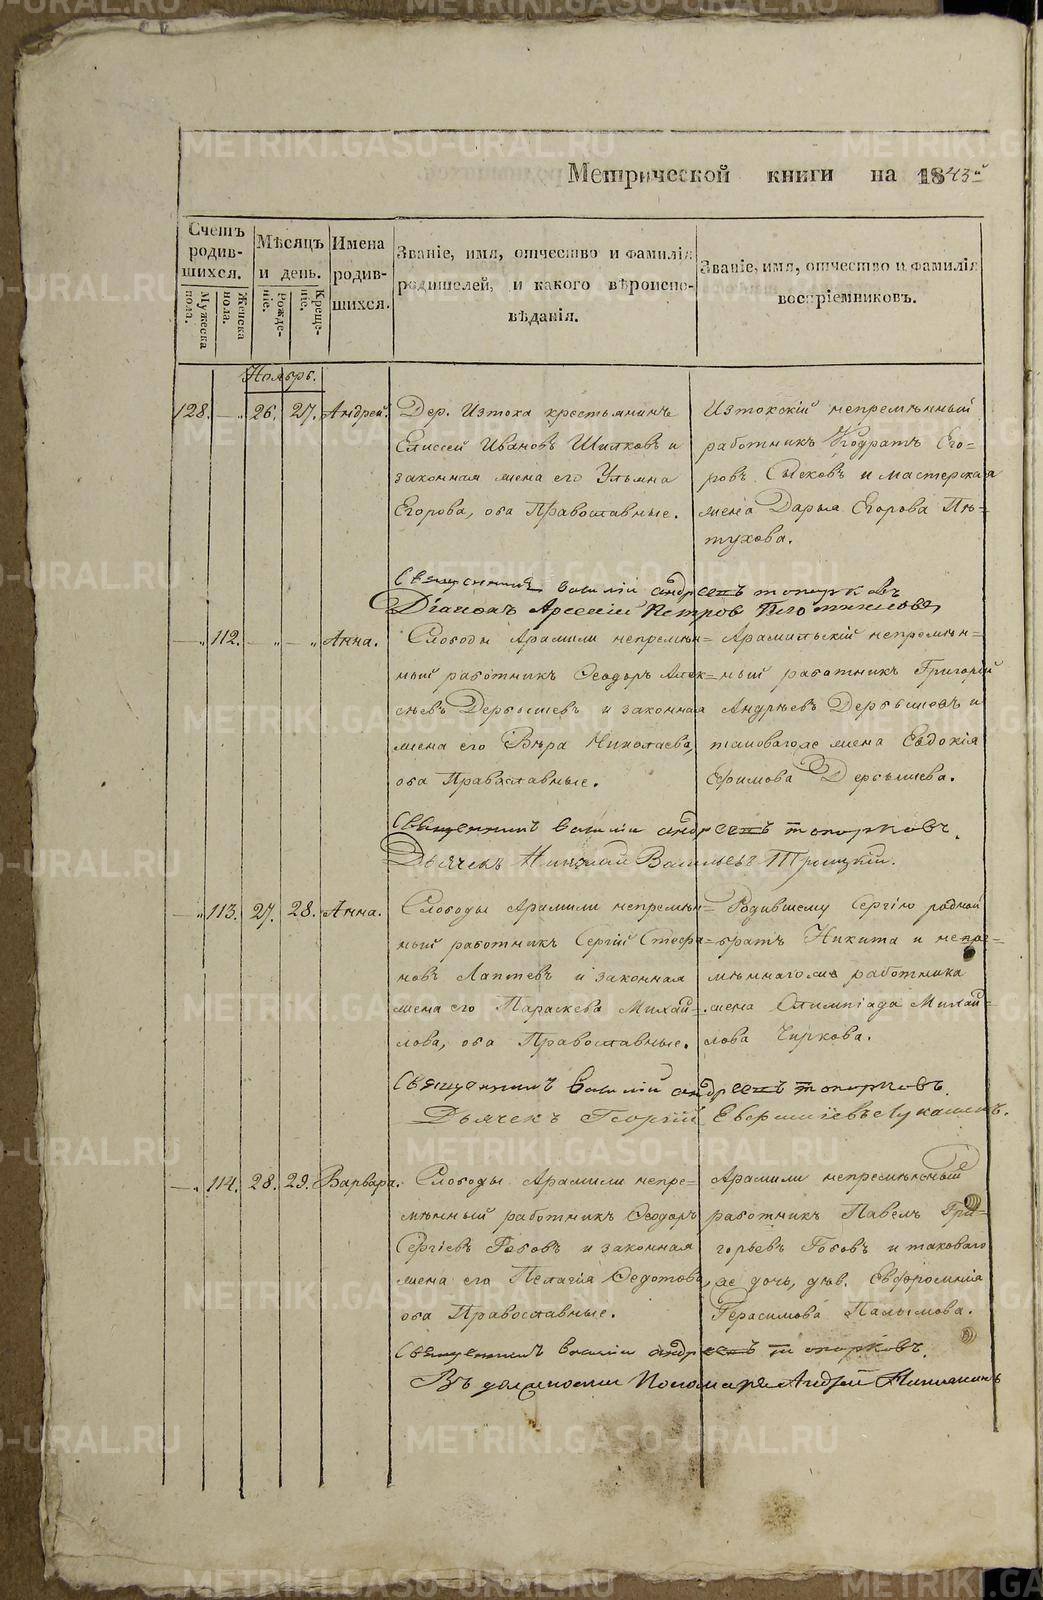 Метрической книги на 1843й
Счетъ родившихся.
Мужеска пола.
Женска пола.
Мѣсяцъ и день.
Рожденіе.
Крещеніе.
Имена родившихся.
Званіе, имя, отчество и фамилія
родителей, и какого вѣроиспо-
вѣданія.
Званіе, имя, отчество и фамилія
воспріемниковъ.
Ноябрь.
128. 26. 27. Андрей.
Дер. Истока крестьянинъ
Елисей Ивановъ Шилковъ и
законная жена его Ульяна
Егорова, оба Православные.
Истокскій непремѣнный
работникъ Кодратъ Его-
ровъ Сысковъ и мастерская
жена Дарья Егорова Пѣ-
тухова.
Священникъ Василій Андреевъ Топорковъ
Діаконъ Арсеній Петров Плотниковъ
112. Анна.
Слободы Арамили непремѣн-
ный работникъ Ѳеодоръ Алек-
сѣевъ Дерябышевъ и законная
жена его Вѣра Николаева,
оба Православные.
Арамильскій непремѣн-
ный работникъ Григорій
Андрѣевъ и
таковагоже жена Евдокія
Ефимова
Священникъ Василій Андреевъ Топорковъ.
Дьячекъ Николай Васильевъ Троицкій.
113. 27. 28. Анна.
Слободы Арамили непремѣн-
ный работникъ Сергій Стефа-
новъ Лаптевъ и законная
жена его Параскева Михай-
лова, оба Православные.
Родившему Сергію родной
братъ Никита и непре-
мѣннагоже работника
жена Олимпіада Михай-
лова Чиркова.
Священникъ Василій Андреевъ Топорковъ.
Дьячекъ Георгій Евфиміевъ Лукашинъ.
114. 28. 29. Варвара.
Слободы Арамили непре-
мѣнный работникъ Ѳеодоръ
Сергіевъ Гобовъ и законная
жена его Пелагія Ѳедотова,
оба Православные.
Арамили непремѣнный
работникъ Павелъ Гри-
горьевъ Гобовъ и таковаго
же дочь, дѣв. Евфросинія
Герасимова Палымова.
Священникъ Василій Андреевъ Топорковъ.
Въ должности Пономаря Андрей
METRIKI.GASO-URAL.RU